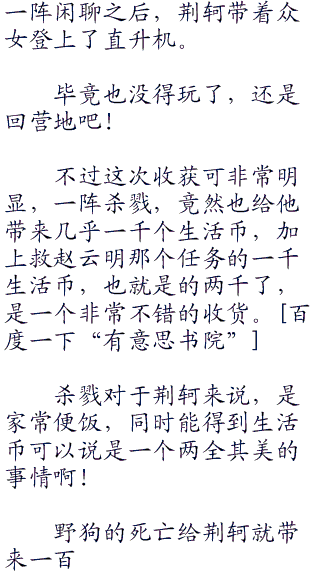 一阵闲聊之后，荆轲带着众
女登上了直升机。
毕竟也没得玩了，还是
回营地吧！
不过这次收获可非常明
显，一阵杀戮，竟然也给他
带来几乎一千个生活币，加
上救赵云明那个任务的一千
生活币，也就是的两千了，
是一个非常不错的收货。[百
度一下“有意思书院”]
杀戮对于荆轲来说，是
家常便饭，同时能得到生活
币可以说是一个两全其美的
事情啊！
野狗的死亡给荆轲就带
来一百